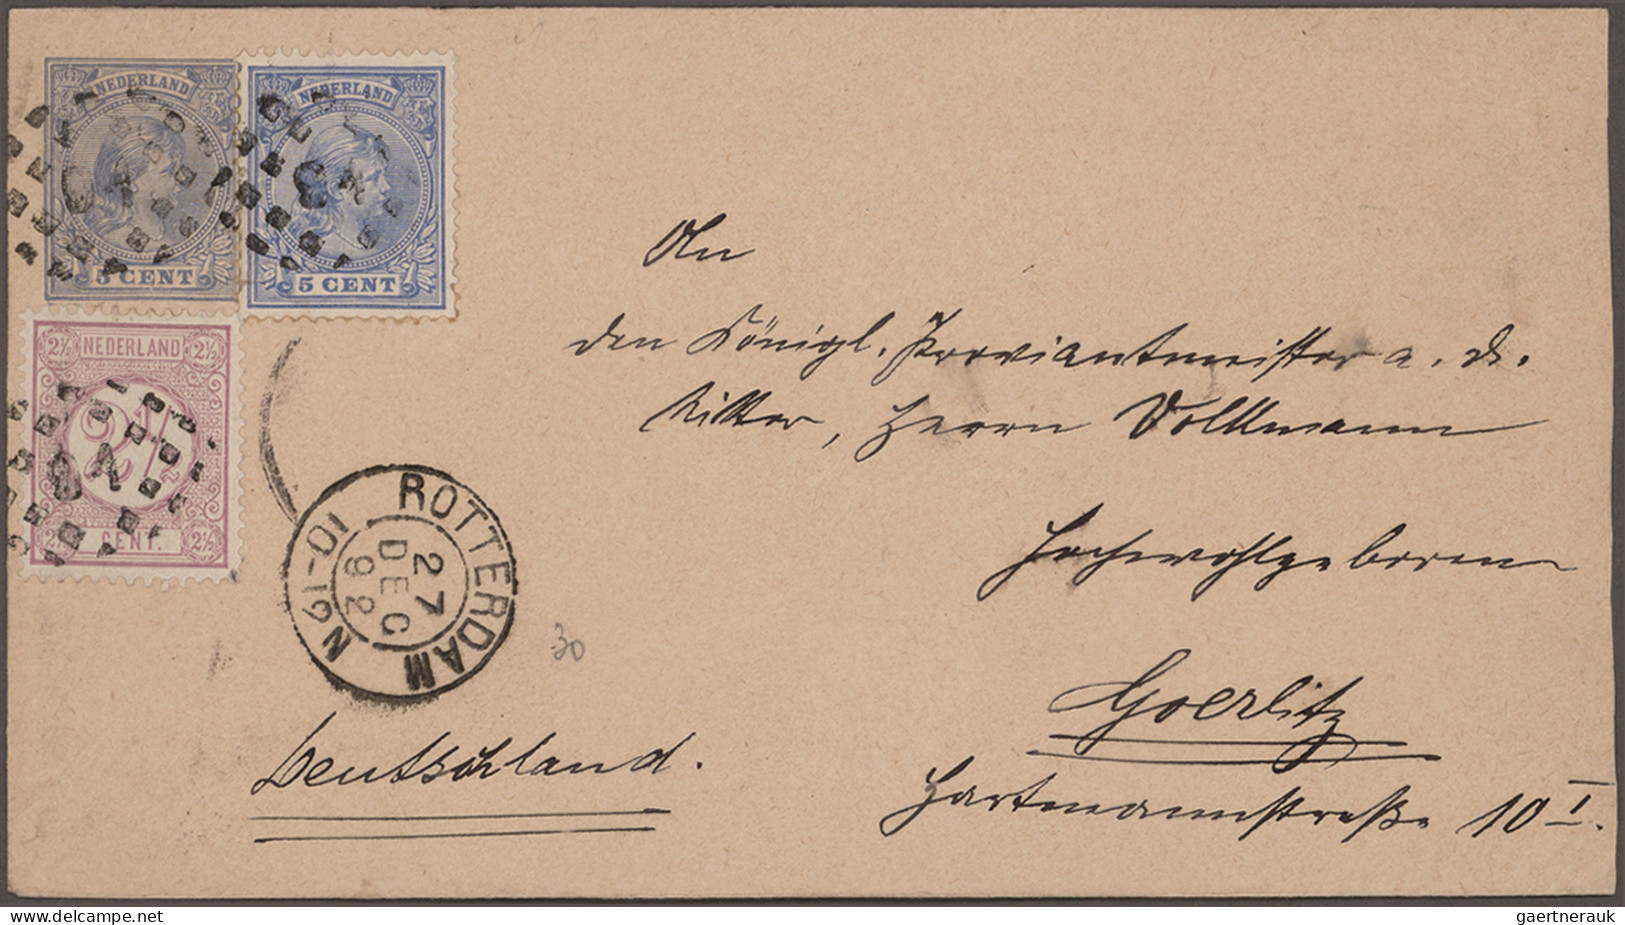 NEDERLAND
5 CENT
NEDERLAND
5 CENT
2½ NEDERLAND 2½
2½
2½ CENT. 2½
An
den Königl. Proviantmeister a. D.
Ritter, Herrn Volkmann
Hochwohlgeboren
Goerlitz
Hartmannstraße 10 I.
ROTTERDAM
27
DEC
92
10-19N
30
Deutschland.
gaertnerauk